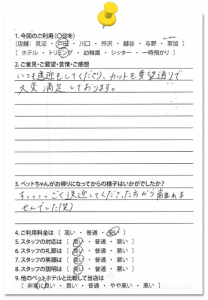 1.今回のご利用(○印を)
[店舗: 見沼・戸田・川口・所沢・越谷・与野・草加]
[ホテル・トリミング・幼稚園・シッター・一時預かり]
2.ご意見・ご要望・苦情・ご感想
いつも送迎もしてくださり、カットも要望通りで
大変満足しております。
3.ペットちゃんがお帰りになってからの様子はいかがでしたか?
送迎してくださった方から
せんでした(笑)
4.ご利用料金は [ 高い ・ 普通 ・ 安い ]
5.スタッフの対応は [ 良い ・ 普通 ・ 悪い ]
6.スタッフの礼節は [ 良い ・ 普通 ・ 悪い ]
7.スタッフの笑顔は [ 良い ・ 普通 ・ 悪い ]
8.スタッフの説明は [ 良い ・ 普通 ・ 悪い ]
9.他のペットホテルと比較して当店は
[ 非常に良い ・ 良い ・ 普通 ・ やや悪い ・ 悪い ]